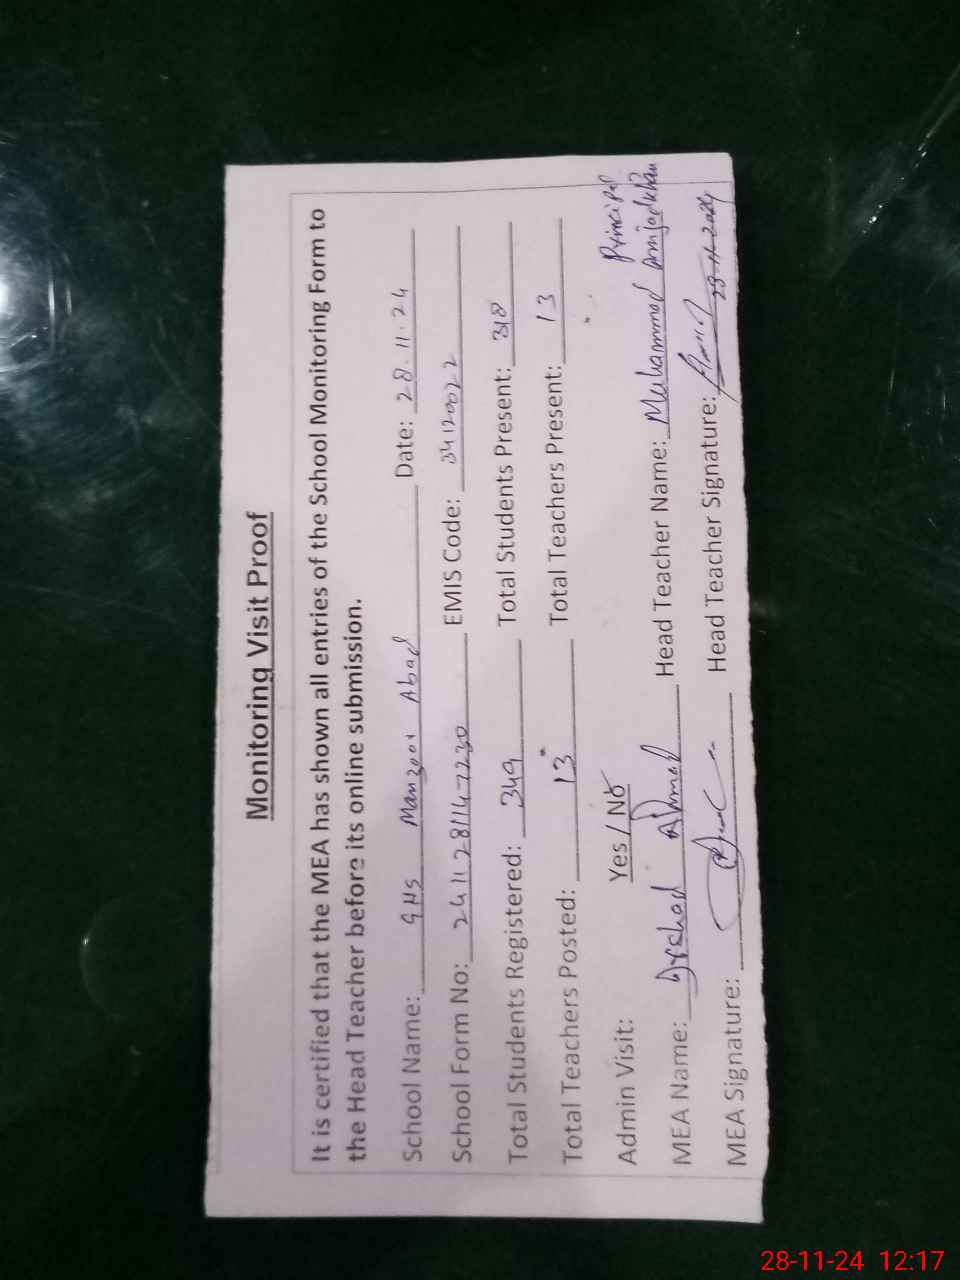 Monitoring Visit Proof
It is certified that the MEA has shown all entries of the School Monitoring Form to
the Head Teacher before its online submission.
School Name: GHS Manzoor Abad Date: 28.11.24
School Form No: 2411281147230 EMIS Code: 34120022
Total Students Registered: 349 Total Students Present: 318
Total Teachers Posted: 13 Total Teachers Present: 13
Admin Visit: Yes / No Principal
MEA Name: Arshad Ahmad Head Teacher Name: Muhammad Amjad Khan
MEA Signature: Head Teacher Signature:
28-11-2024
28-11-24 12:17